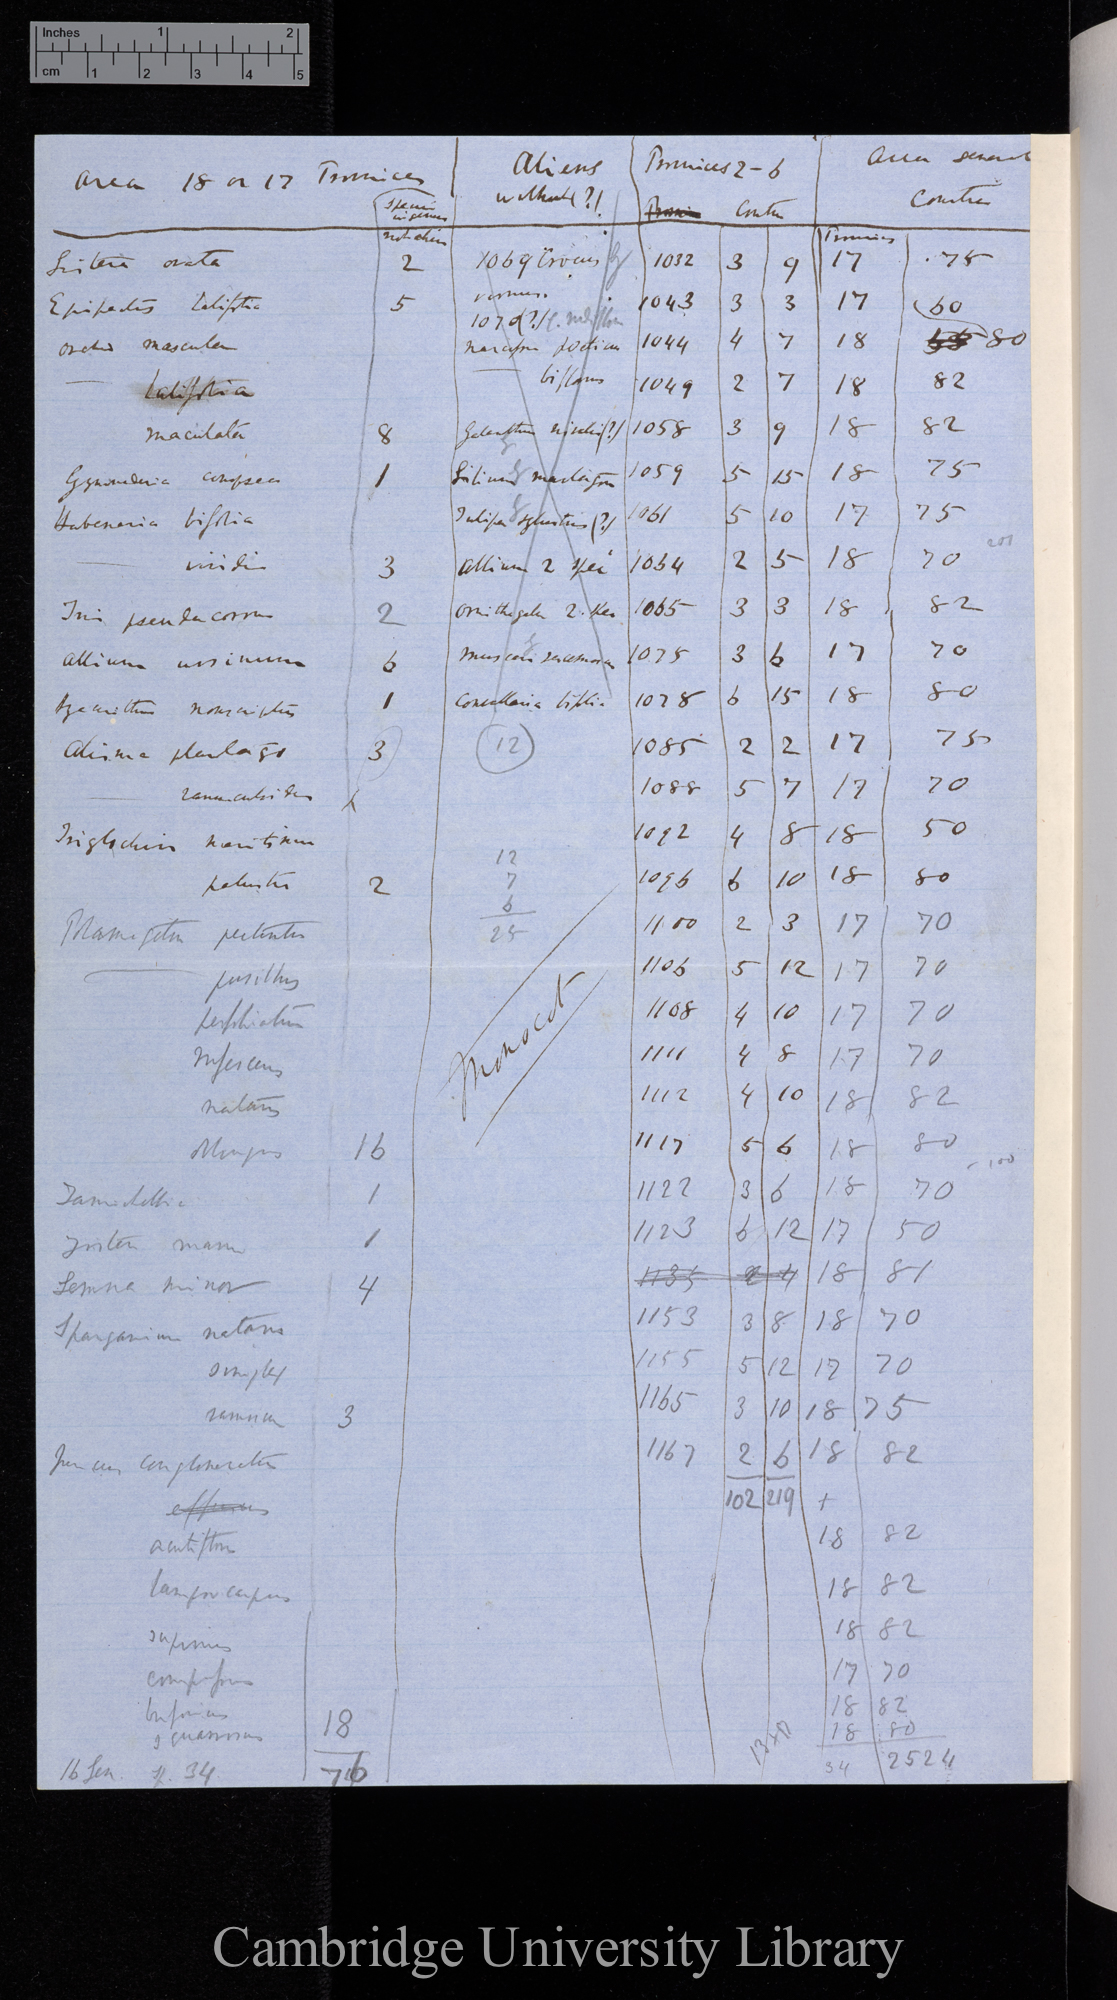 Inches 1 2
cm 1 2 3 4 5
Area 18 or 17 Provinces
Species in genus not aliens
Aliens without (?)
Provinces 2-6
Counties
Area general
Provinces Counties
Listera ovata 2 1069 Crocus vernus 1032 3 9 17 75
Epipactis latifolia 5 1070 (?) 1043 3 3 17 60
Orchis mascula narcissus poeticus 1044 4 7 18 80
— latifolia — biflorus 1049 2 7 18 82
maculata 8 Galanthus nivalis (?) 1058 3 9 18 82
Gymnadenia conopsea 1 Lilium martagon 1059 5 15 18 75
Habenaria bifolia Tulipa sylvestris (?) 1061 5 10 17 75
— viridis 3 Allium 2 spec 1064 2 5 18 70
Iris pseudacorus 2 Ornithogalum 2 spec 1065 3 3 18 82
Allium ursinum 6 Muscari racemosum 1075 3 6 17 70
Hyacinthus nonscriptus 1 Convallaria bifolia 1078 6 15 18 80
Alisma plantago 3 12 1085 2 2 17 75
— ranunculoides 1088 5 7 17 70
Triglochin maritimum 1092 4 8 18 50
palustre 2 12 1096 6 10 18 80
7
6
25
Potamogeton pectinatus 1100 2 3 17 70
— pusillus 1106 5 12 17 70
perfoliatus 1108 4 10 17 70
Monocot
rufescens 1111 4 8 17 70
natans 1112 4 10 18 82
oblongus 16 1117 5 6 18 80
Zannichellia 1 1122 3 6 18 70
Zostera marina 1 1123 6 12 17 50
Lemna minor 4 1135 2 4 18 81
Sparganium natans 1153 3 8 18 70
simplex 1155 5 12 17 70
ramosum 3 1165 3 10 18 75
Juncus conglomeratus 1167 2 6 18 82
effusus 102 219 +
acutiflorus 18 82
lamprocarpus 18 82
supinus 18 82
compressus 17 70
bufonius 18 18 82
squarrosus 18 80
16 Gen. sp. 34. 76 34 2524
Cambridge University Library